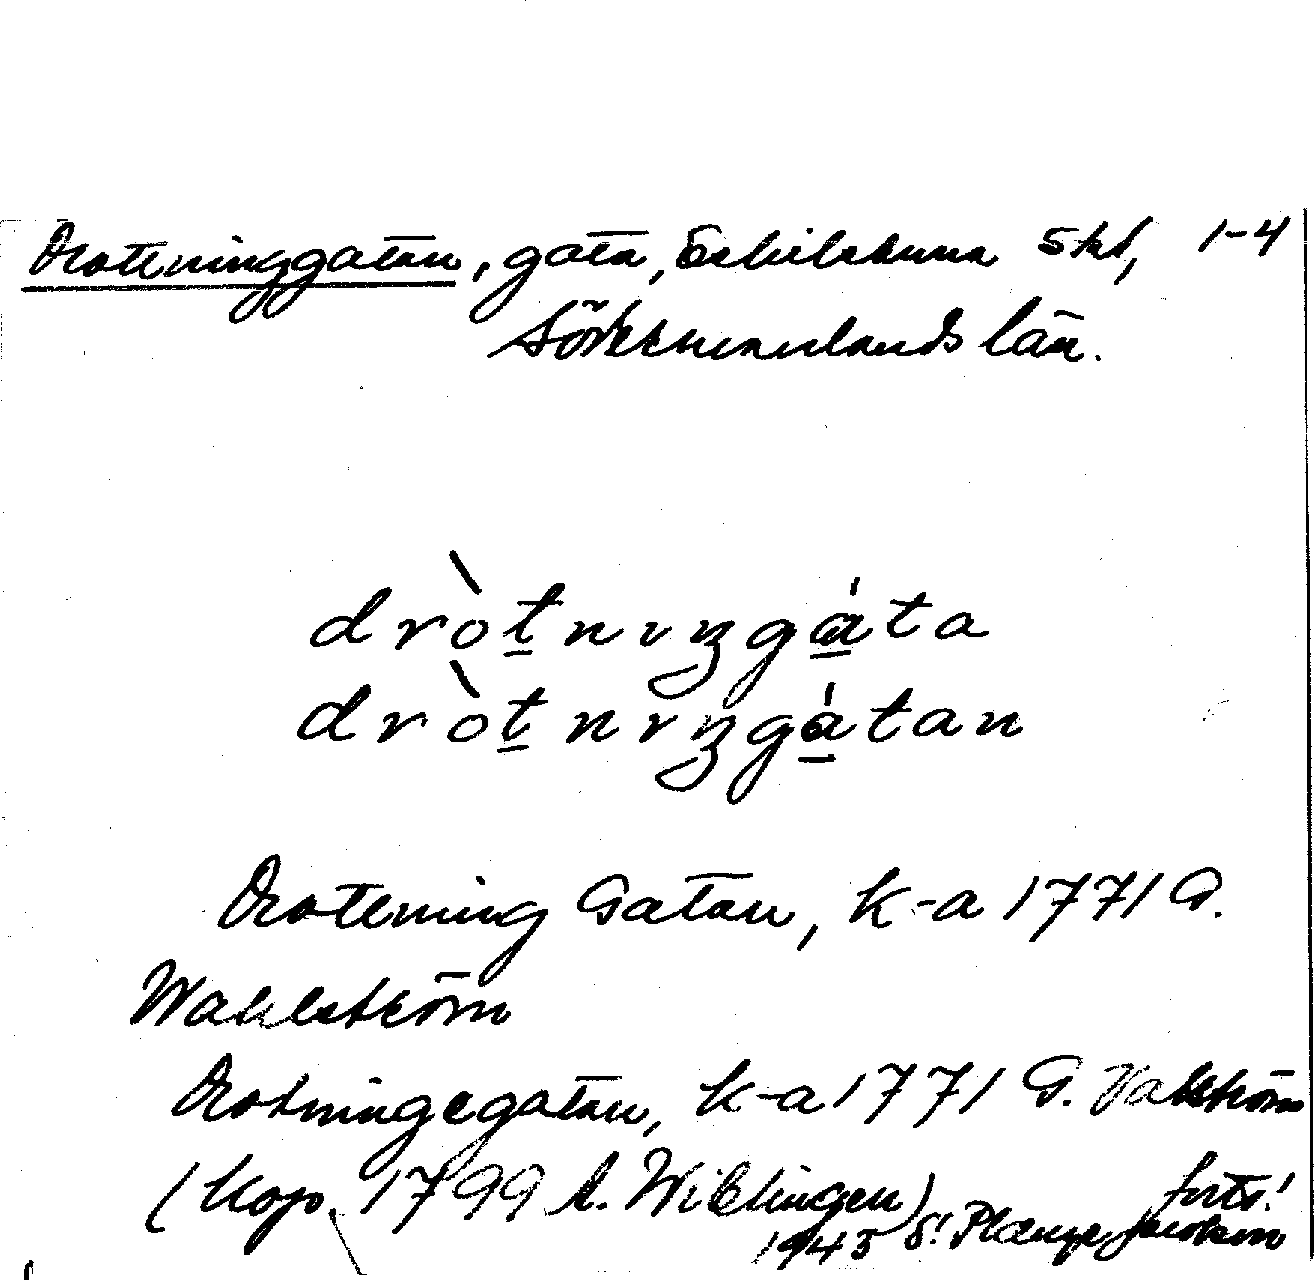 Drotteninggatan, gata, Eskilstuna skt, 1-4
Södermanlands län.
dròt̲nıŋgá̲ta
dròt̲nıŋgá̲tan
Drotening Gatan, k-a 1771 G.
Wahlström
Drotningegatan, k-a 1771 G. Vahlström
(kop. 1799 L. Wiblingen)
forts!
1943 S. Plange Jacobson